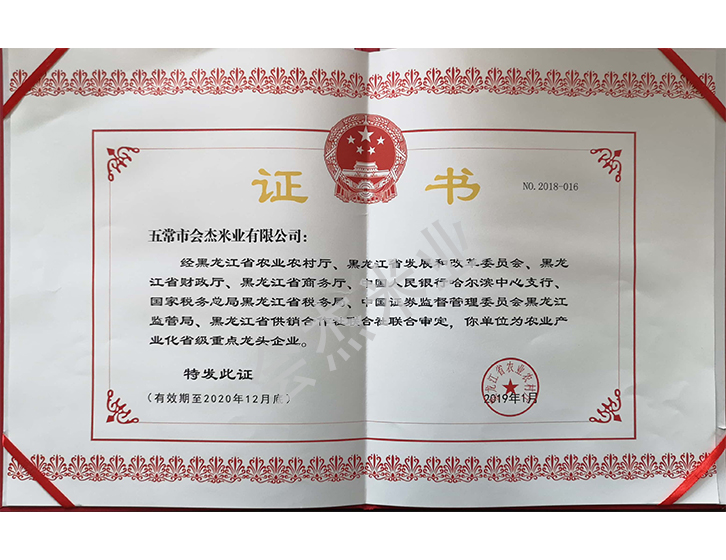 证 书
NO. 2018-016
五常市会杰米业有限公司：
经黑龙江省农业农村厅、黑龙江省发展和改革委员会、黑
龙江省财政厅、黑龙江省商务厅、中国人民银行哈尔滨中心支行、
国家税务总局黑龙江省税务局、中国证券监督管理委员会黑龙江
监管局、黑龙江省供销合作社联合社联合审定，你单位为农业产
业化省级重点龙头企业。
特发此证
（有效期至2020年12月底）
2019年1月
黑龙江省农业农村厅
会杰米业